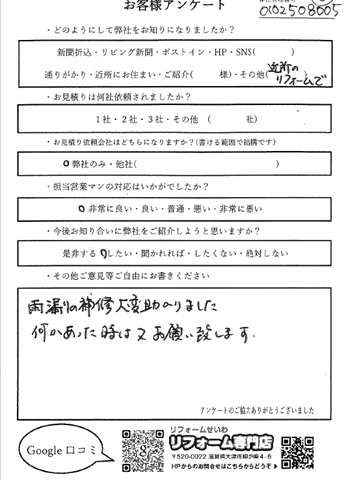 お客様アンケート
0102508005
・どのようにして弊社をお知りになりましたか？
新聞折込・リビング新聞・ポストイン・HP・SNS(　　　)
通りがかり・近所にお住まい・ご紹介(　　　様)・その他(近所のリフォームで
・お見積りは何社依頼されましたか？
1社・2社・3社・その他（　　　社）
・お見積り依頼会社はどちらになりますか？(書ける範囲で結構です)
弊社のみ・他社(　　　)
・担当営業マンの対応はいかがでしたか？
非常に良い・良い・普通・悪い・非常に悪い
・今後お知り合いに弊社をご紹介しようと思いますか？
是非する・したい・聞かれれば・したくない・絶対しない
・その他ご意見等ご自由にお書きください
雨漏りの補修大変助かりました
何かあった時は又お願い致します.
アンケートのご協力ありがとうございました
Google 口コミ
リフォームせいわ
リフォーム専門店
〒520-0022 滋賀県大津市柳が崎4-6
HPからのお問合せはこちらからどうぞ